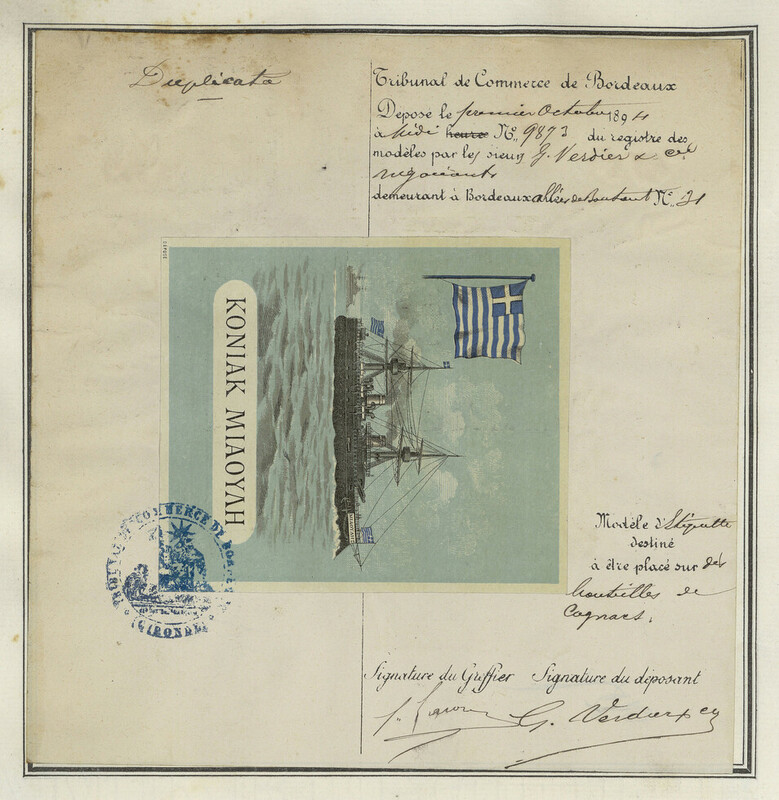 Duplicata
Tribunal de Commerce de Bordeaux
Déposé le premier Octobre 1894
à Midi heure Nº. 9873 du registre des
modèles par les sieurs G. Verdier & Cie
négociants
demeurant à Bordeaux allées de Boutaut Nº. 31
DÉPOSÉ
ΚΟΝΙΑΚ ΜΙΑΟΥΛΗ
TRIBUNAL DE COMMERCE DE BORDEAUX
GIRONDE
Modèle d'Etiquette
destiné
à être placé sur des
bouteilles de
Cognacs.
Signature du Greffier Signature du déposant
G. Verdier & Cie